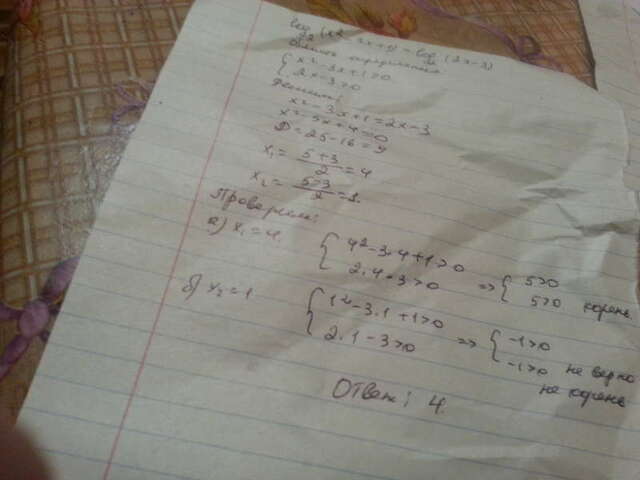 log₂ (x² - 3x + 1) = log₂ (2x - 3)
Область определения
{ x² - 3x + 1 > 0
2x - 3 > 0
Решение:
x² - 3x + 1 = 2x - 3
x² - 5x + 4 = 0
D = 25 - 16 = 9
x₁ = (5 + 3)/2 = 4
x₂ = (5 - 3)/2 = 1.
Проверим:
а) x₁ = 4. { 4² - 3·4 + 1 > 0 => { 5 > 0
2·4 - 3 > 0 5 > 0 корень
б) x₂ = 1 { 1² - 3·1 + 1 > 0 => { -1 > 0
2·1 - 3 > 0 -1 > 0 не верно
не корень
Ответ: 4.